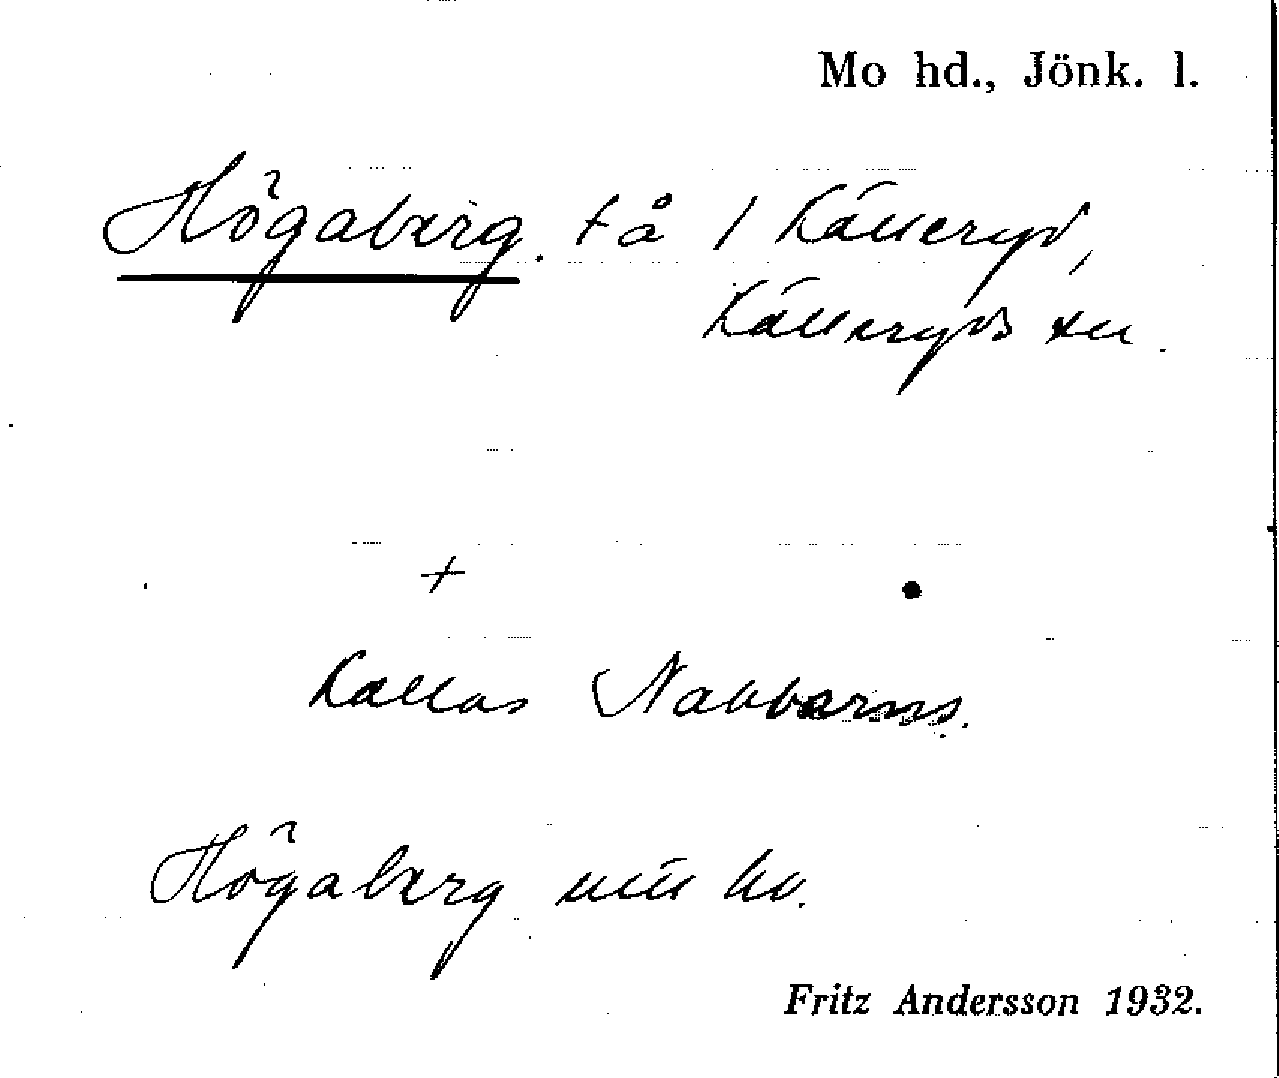 Mo hd., Jönk. l.
Högaberg. tå 1 Källeryd,
Källeryds sn.
+
Kallas Nabbarns.
Högaberg
Fritz Andersson 1932.